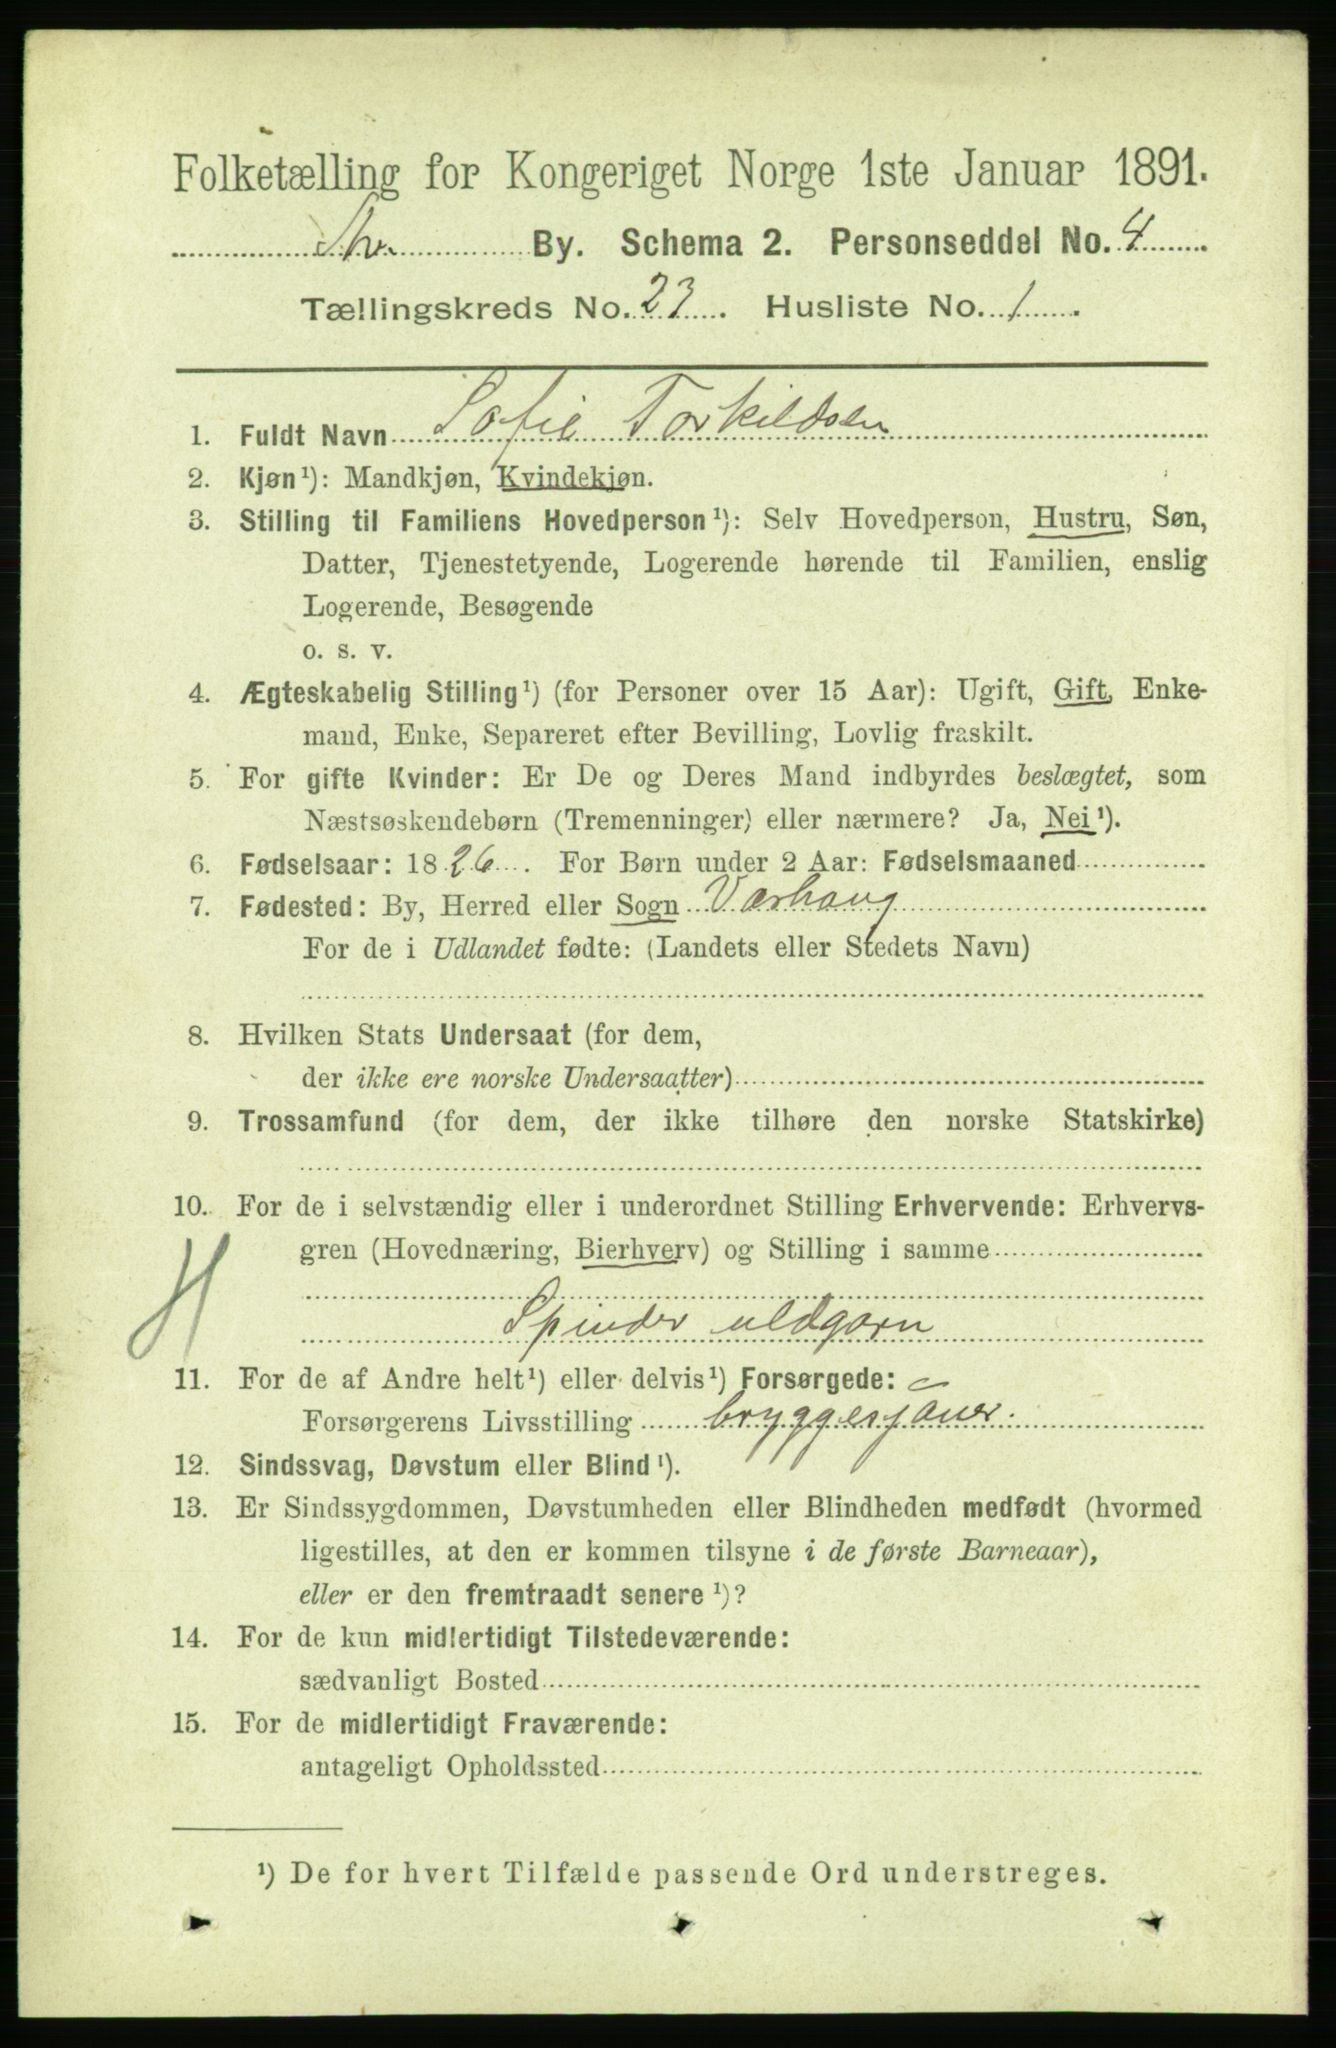 Folketælling for Kongeriget Norge 1ste Januar 1891.
By. Schema 2. Personseddel No. 4
Tællingskreds No. 23. Husliste No. 1.
1. Fuldt Navn Sofie Torkildsen
2. Kjøn¹): Mandkjøn, Kvindekjøn.
3. Stilling til Familiens Hovedperson¹): Selv Hovedperson, Hustru, Søn,
Datter, Tjenestetyende, Logerende hørende til Familien, enslig
Logerende, Besøgende
o. s. v.
4. Ægteskabelig Stilling¹) (for Personer over 15 Aar): Ugift, Gift, Enke-
mand, Enke, Separeret efter Bevilling, Lovlig fraskilt.
5. For gifte Kvinder: Er De og Deres Mand indbyrdes beslægtet, som
Næstsøskendebørn (Tremenninger) eller nærmere? Ja, Nei¹).
6. Fødselsaar: 1826. For Børn under 2 Aar: Fødselsmaaned
7. Fødested: By, Herred eller Sogn Varhaug
For de i Udlandet fødte: (Landets eller Stedets Navn)
8. Hvilken Stats Undersaat (for dem,
der ikke ere norske Undersaatter)
9. Trossamfund (for dem, der ikke tilhøre den norske Statskirke)
10. For de i selvstændig eller i underordnet Stilling Erhvervende: Erhvervs-
gren (Hovednæring, Bierhverv) og Stilling i samme
H
Spinder uldgarn
11. For de af Andre helt¹) eller delvis¹) Forsørgede:
Forsørgerens Livsstilling bryggesjauer.
12. Sindssvag, Døvstum eller Blind¹).
13. Er Sindssygdommen, Døvstumheden eller Blindheden medfødt (hvormed
ligestilles, at den er kommen tilsyne i de første Barneaar),
eller er den fremtraadt senere¹)?
14. For de kun midlertidigt Tilstedeværende:
sædvanligt Bosted
15. For de midlertidigt Fraværende:
antageligt Opholdssted
¹) De for hvert Tilfælde passende Ord understreges.